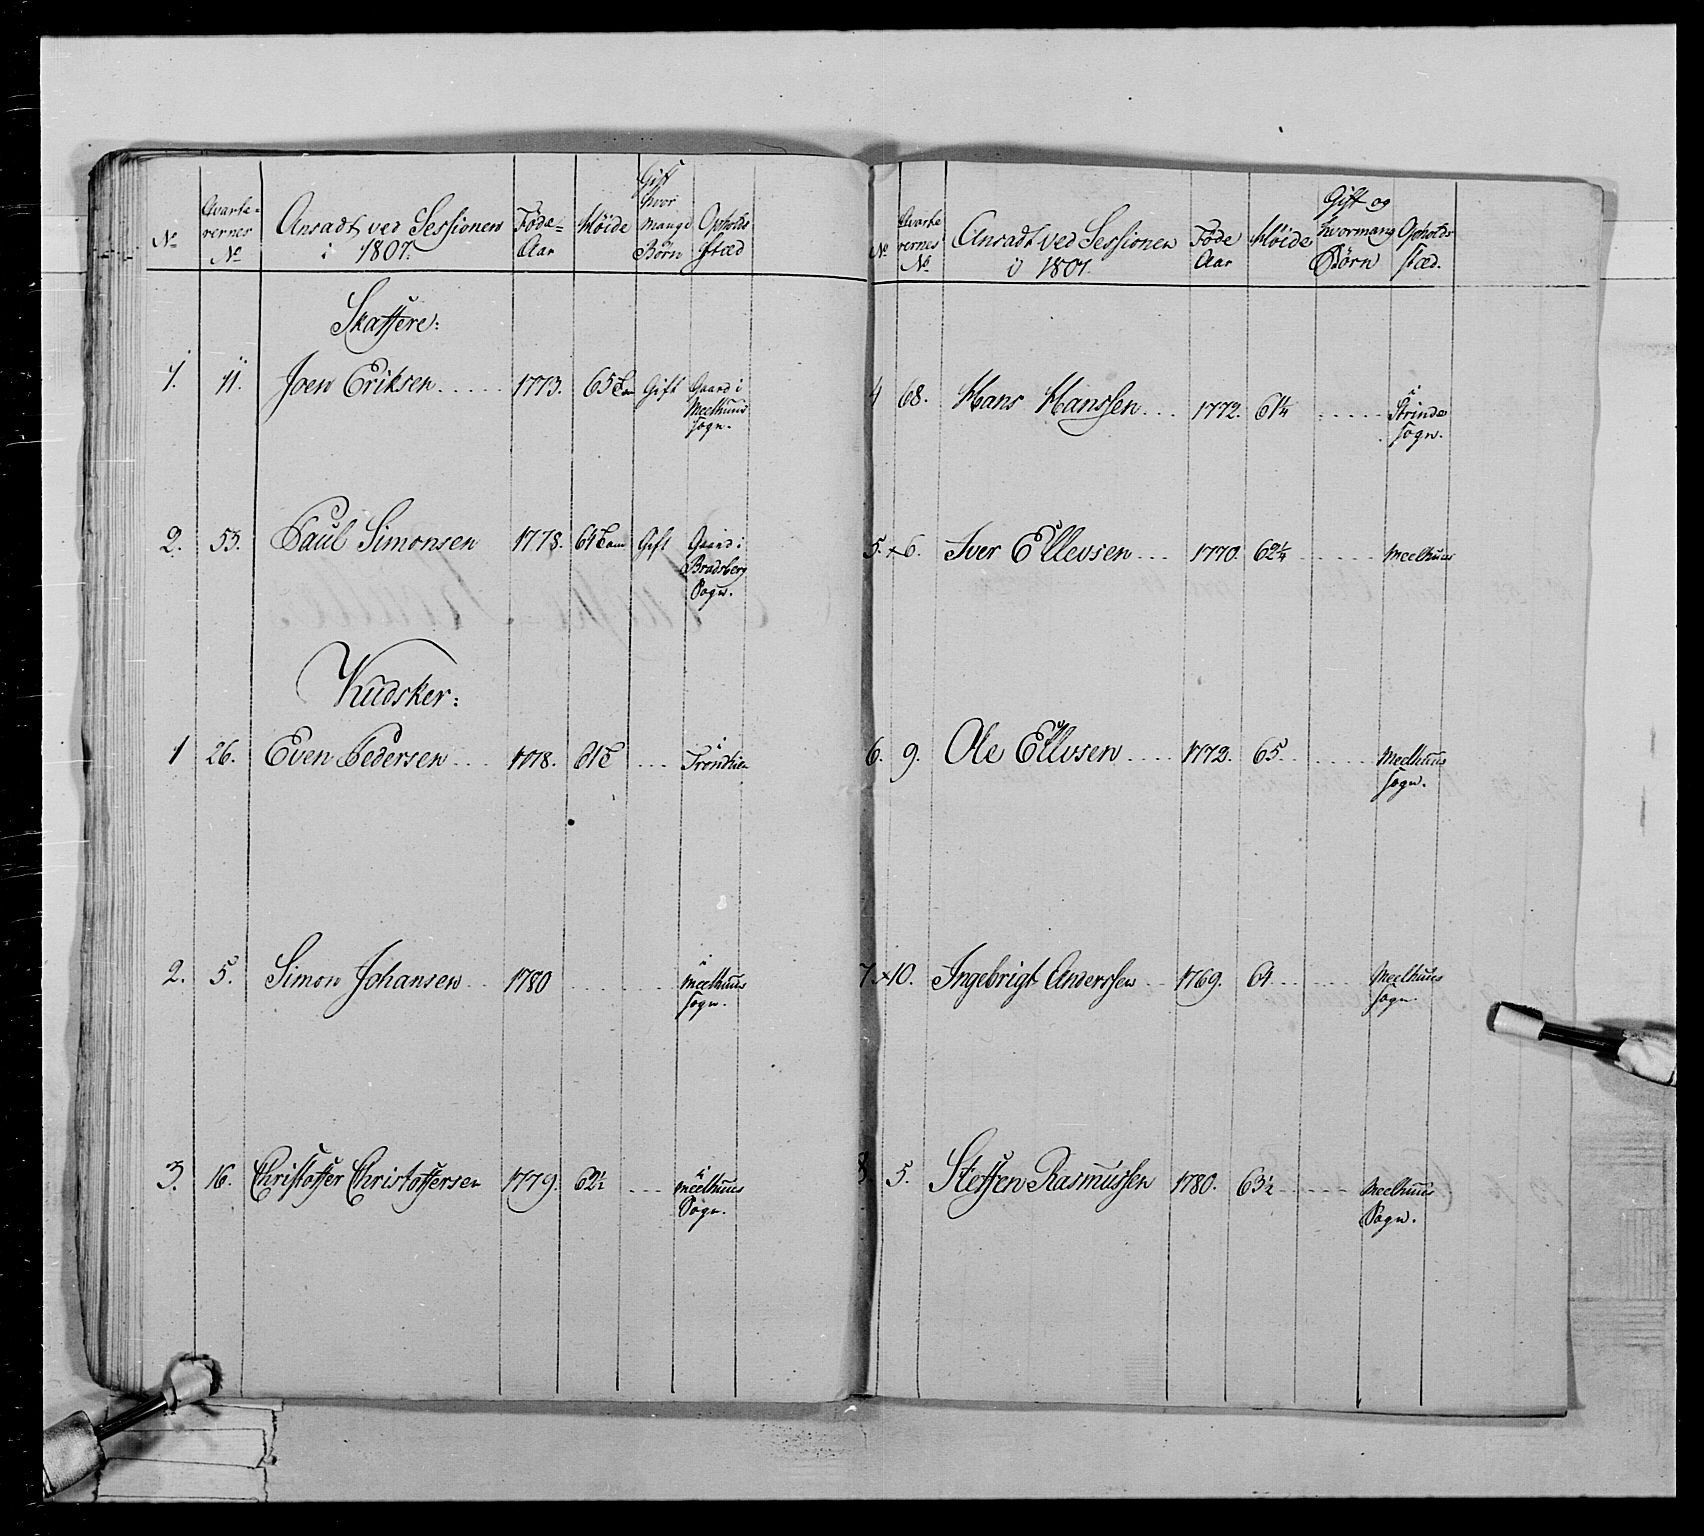 No
Qvarte-
rernes
No
Ansadt ved Sessionen
i 1801.
Føde-
Aar
Høide
Gift
hvor
mange
Børn
Opholds
stæd
Skaffere:
1. 11. Joen Eriksen..... 1773. 65 Gift Gaard i
Meelhuus
Sogn.
2. 53. Paul Simonsen 1778. 61 Gift Gaard i
Bradsberg
Sogn.
Kudsker:
1 26. Even Pedersen... 1778. 61 ... i
Trondhiem
2. 5. Simon Johansen.. 1780 ...... i
Meelhuus
Sogn.
3. 16. Christoffer Christoffersen 1779. 62½ ... i
Meelhuus
Sogn.
No
Qvarte
rernes
No
Ansadt ved Sessionen
i 1801.
Føde
Aar
Høide
Gift og
hvormang
Børn
Opholds
stæd.
4 68. Hans Hanssen... 1772. 61¼ ..... i
Strinde
Sogn.
5. × 6. Iver Ellevsen... 1770. 62¼ ...... Meelhuus
6. 9. Ole Ellevsen.... 1772. 65....... Meelhuus
Sogn.
7. × 10. Ingebrigt Anderssen.. 1769. 61....... Meelhuus
Sogn.
8. 5. Steffen Rasmussen 1780. 63½...... Meelhuus
Sogn.